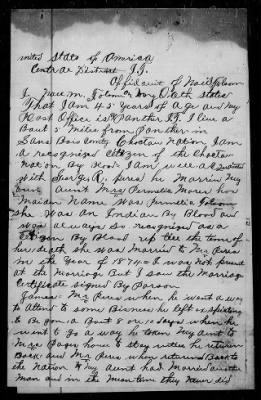 United State of America
Central District I.T.
Affidavit of Noel Folsom
I, m. Folsom on Oath states
That I am 45 years of Age and my
Post Office is Panther I.T. I live a
Bout 5 miles from Panther in
Sans Bois County Choctaw Nation, I am
a recognized citizen of the Choctaw
Nation By Blood I am well acquainted
with George R. he Married my
own Aunt Mrs Permelia her
Maiden Name was Permelia Folsom
She was an Indian By Blood and
was always so recognized as a
Citizen By Blood up till the time of
her death she was Married to Mr.
in the Year of 1874 I was not present
at the Marriage But I saw the Marriage
Certificate signed By Parson
James. Mr. when he want a way
to Attend to some Bisness he left expecting
to Be gon a Bout 8 or 10 days when he
went to go a way he taken my Aunt to
house to stay untill he return
Back and Mr. when returned Back to
the Nation my Aunt had Married another
Man and in the mean time they never did